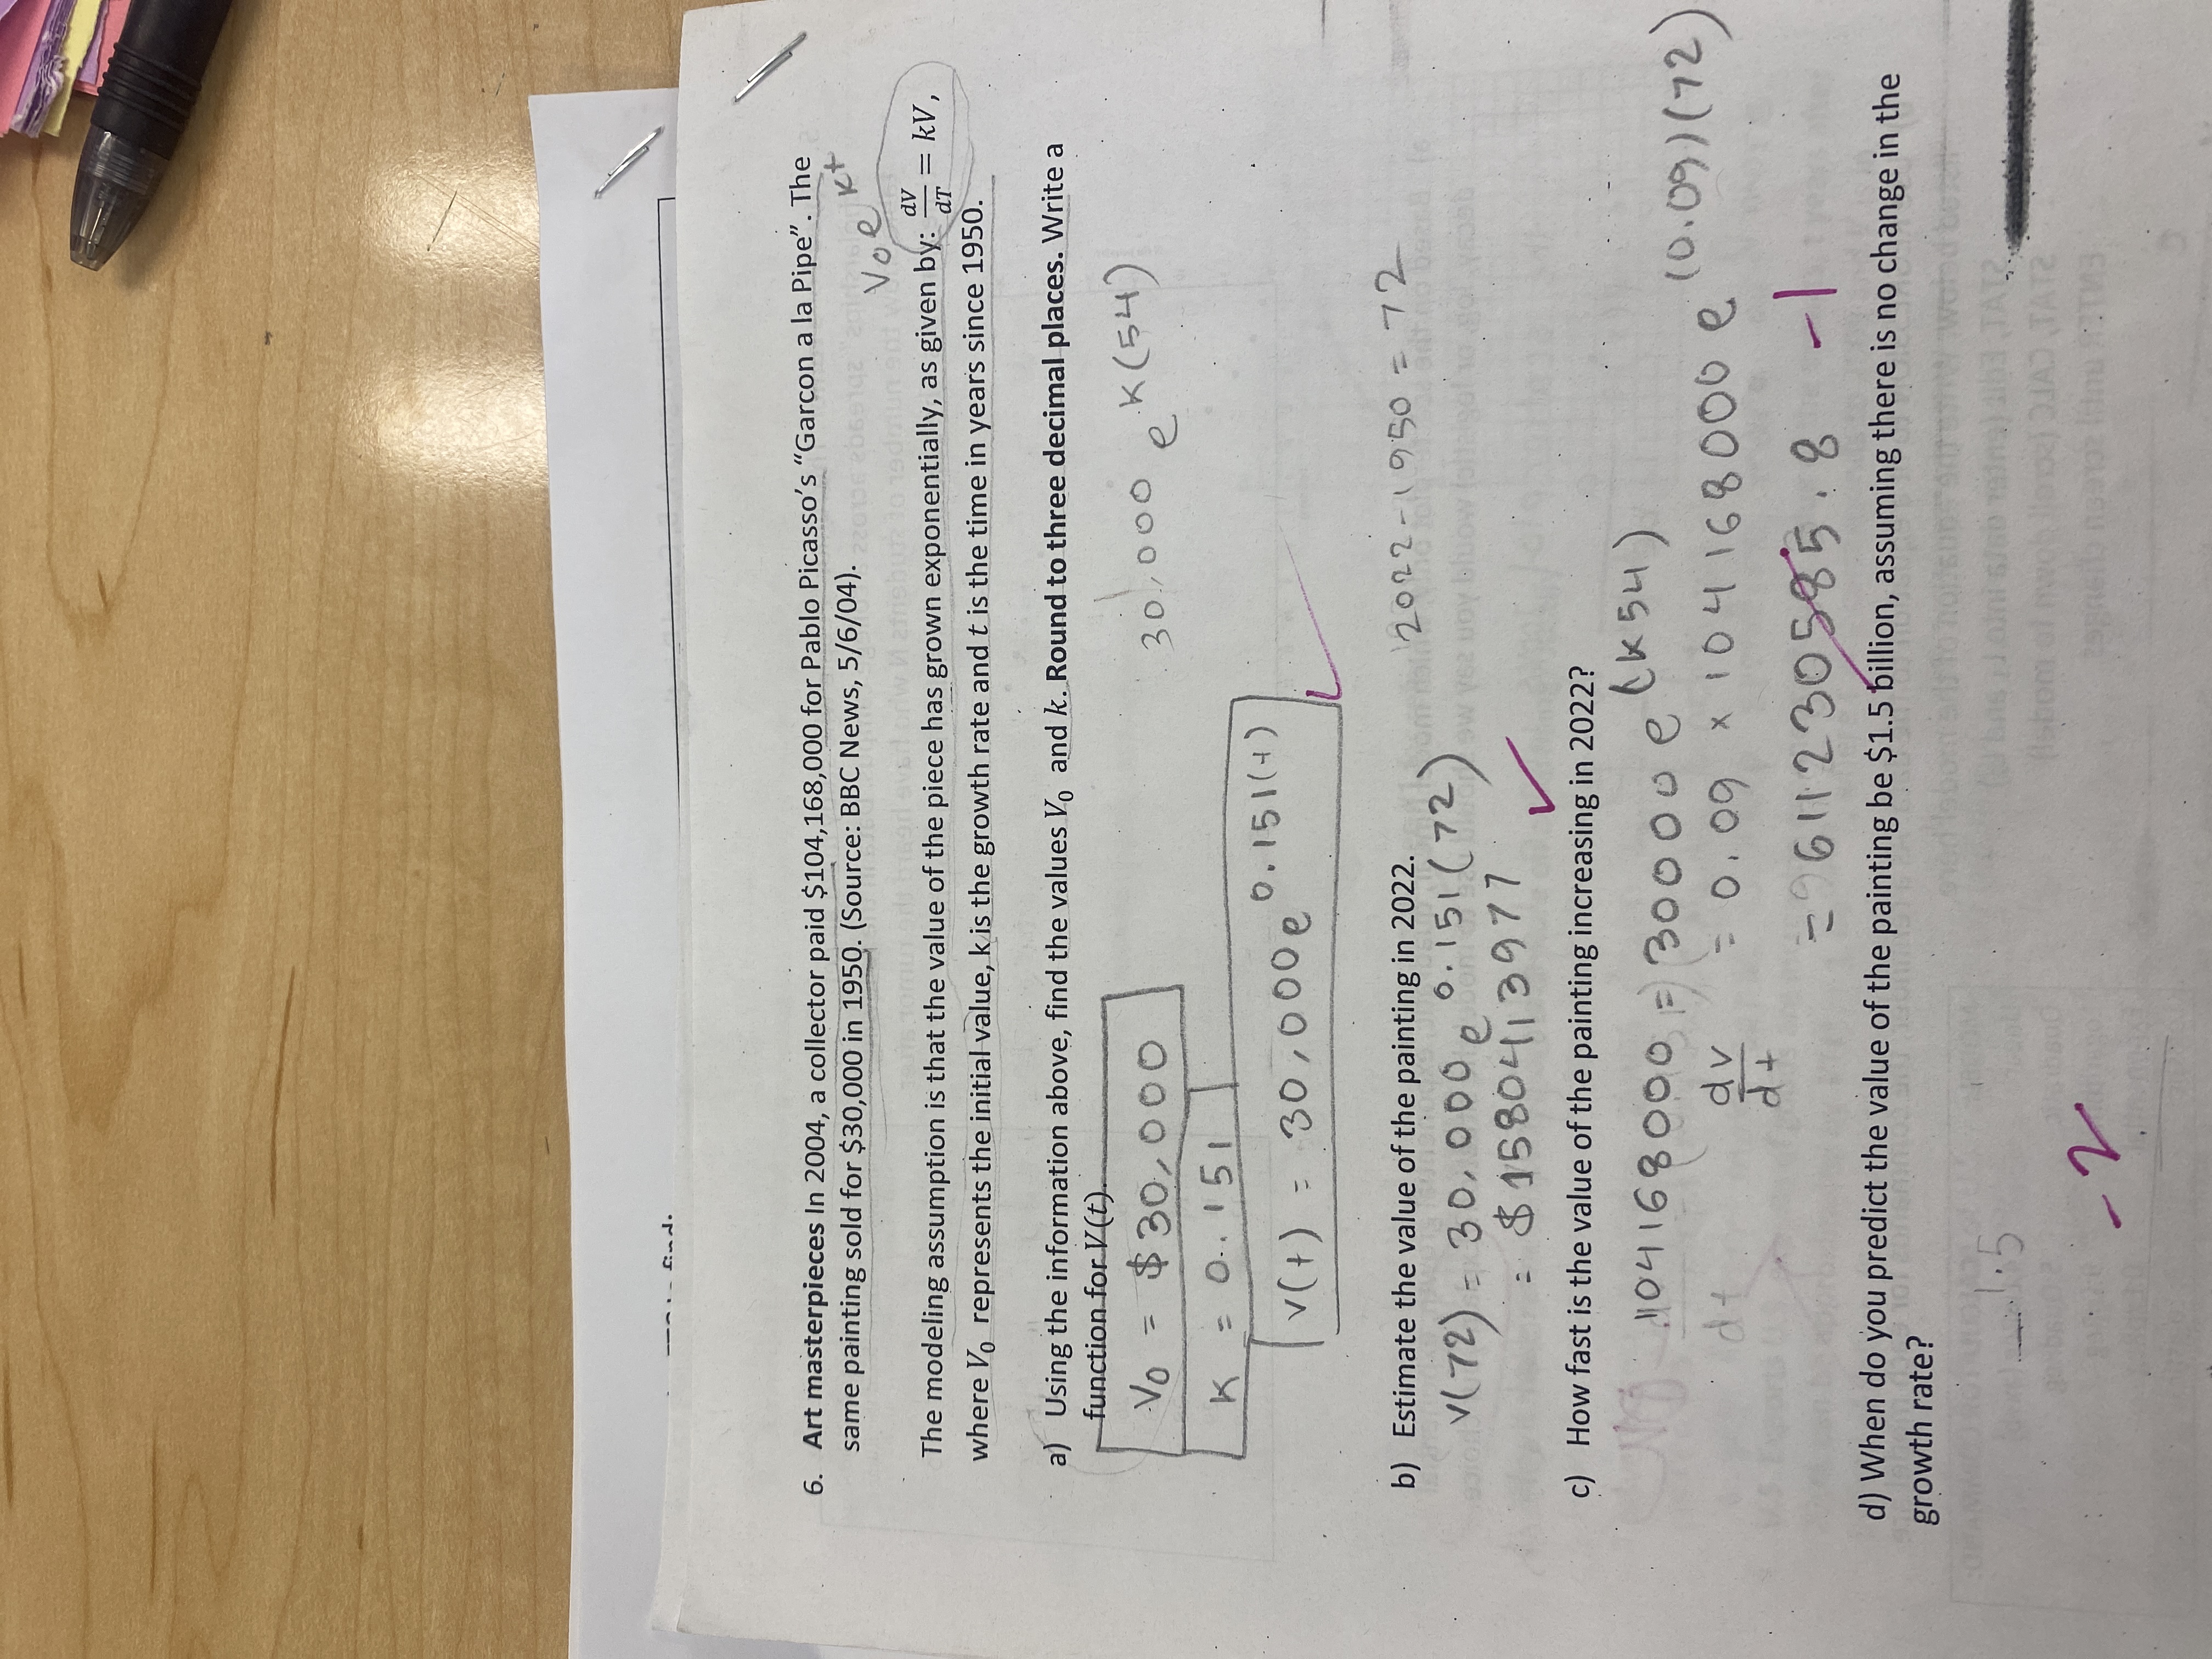 6. Art masterpieces In 2004, a collector paid $104,168,000 for Pablo Picasso's “Garcon a la Pipe”. The
same painting sold for $30,000 in 1950. (Source: BBC News, 5/6/04).
V₀e^kt
The modeling assumption is that the value of the piece has grown exponentially, as given by: dV/dT = kV,
where V₀ represents the initial value, k is the growth rate and t is the time in years since 1950.
a) Using the information above, find the values V₀ and k. Round to three decimal places. Write a
function for V(t).
30,000 e^k(54)
V₀ = $30,000
K = 0.151
V(t) = 30,000e^0.151(t)
b) Estimate the value of the painting in 2022.
2022-1950 = 72
V(72) = 30,000e^0.151(72)
= $1580413977
c) How fast is the value of the painting increasing in 2022?
104168000 = 30000 e^(k54)
dv/dt = 0.09 × 104168000 e^(0.09)(72)
= 9611230585.8
-1
d) When do you predict the value of the painting be $1.5 billion, assuming there is no change in the
growth rate?
1.5
-2